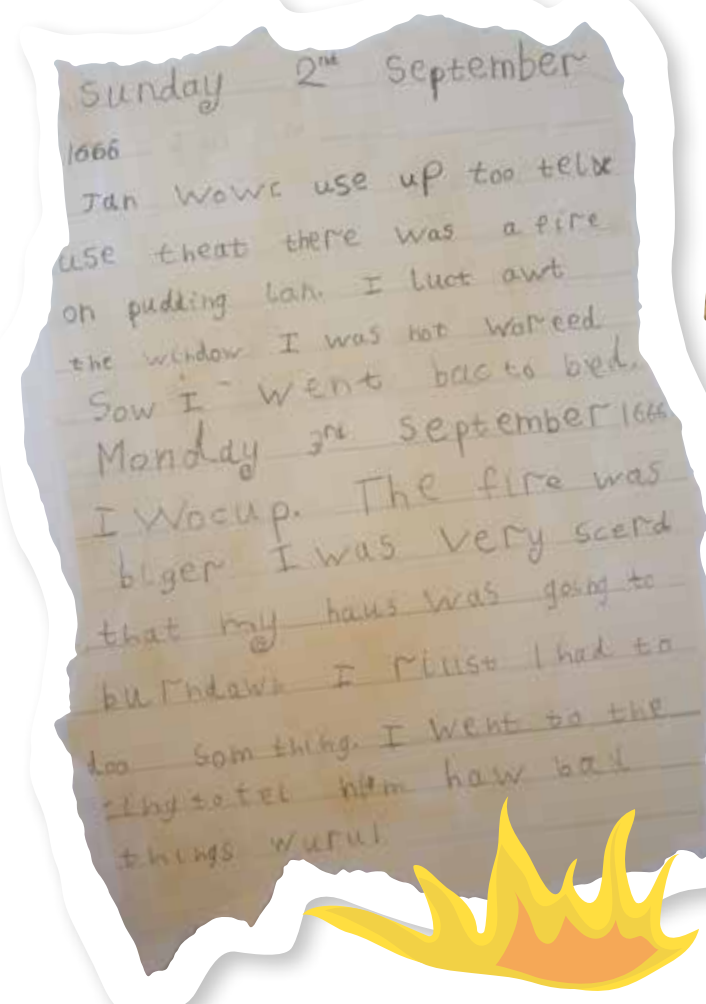 Sunday 2nd September
1666
Jan wowc use up too telx
use theat there was a fire
on pudding Lan. I luct awt
the window I was not woreed
Sow I went bac to bed.
Monday 3rd September 1666
I Wocup. The fire was
biger I was very scerd
that my haus was going to
burndawn I rilist I had to
doo som thing. I went to the
to tel him haw bad
things wurul